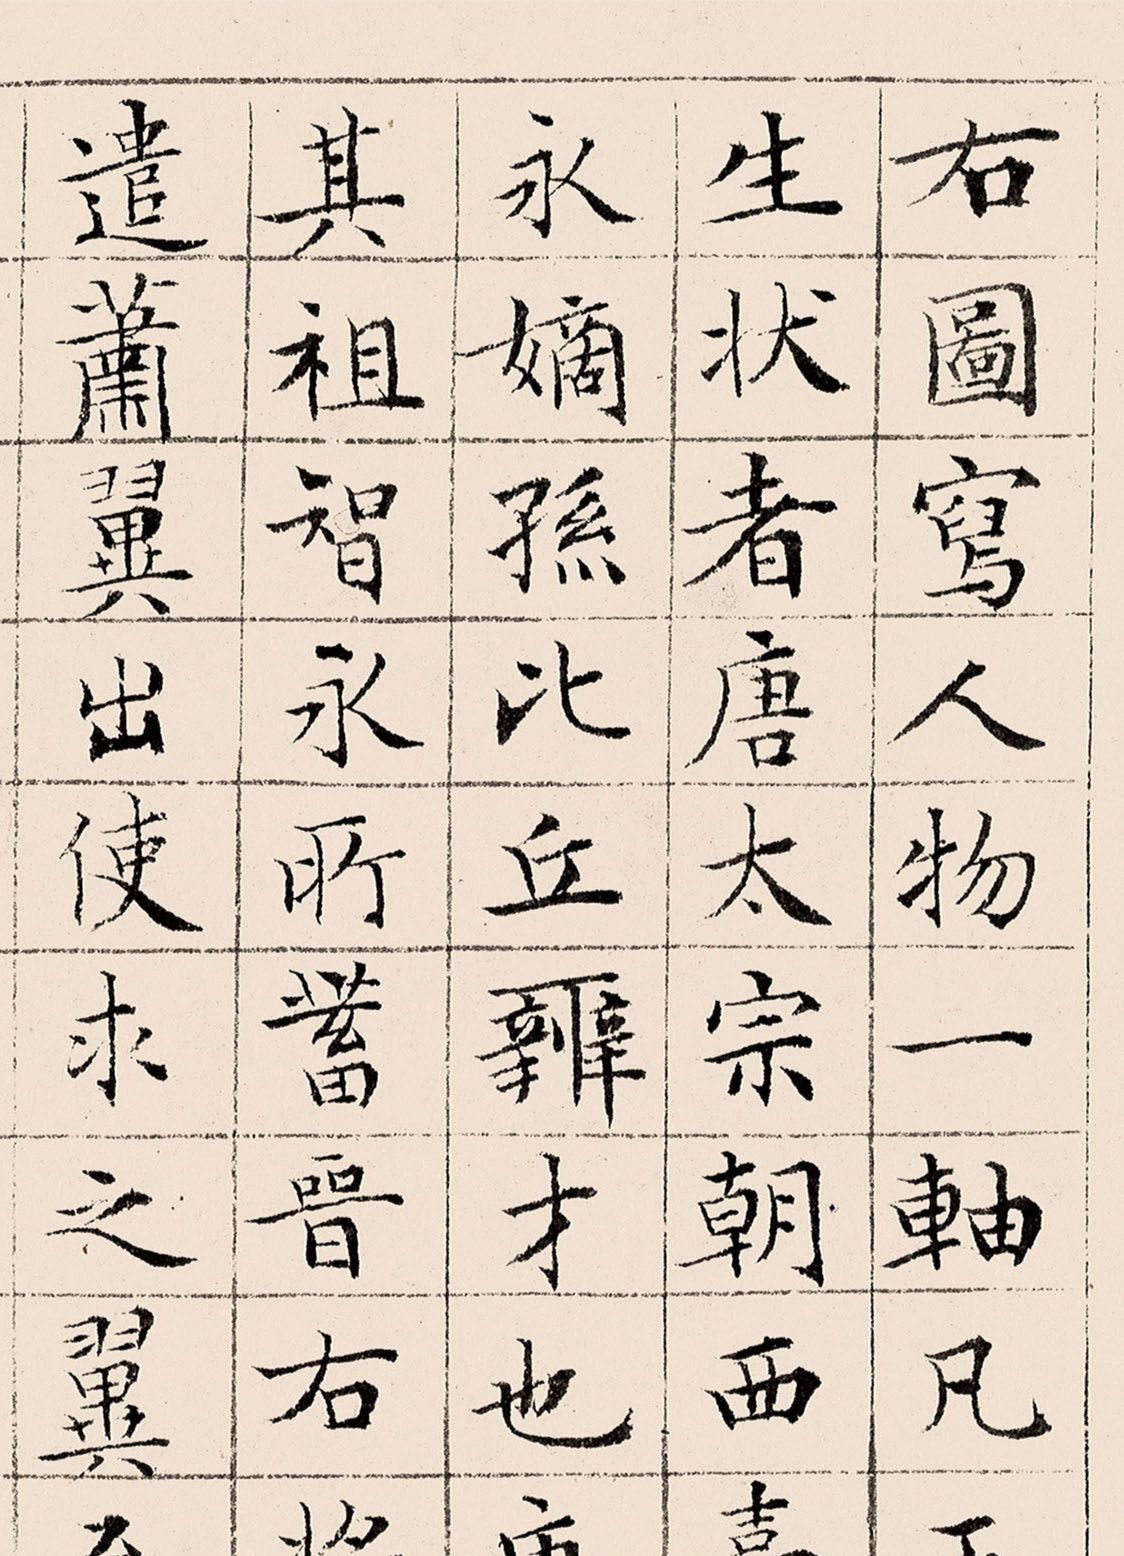 右圖寫人物一軸凡
生狀者唐太宗朝西
永嫡孫比丘辯才也
其祖智永所蓄晉右
遣蕭翼出使求之翼